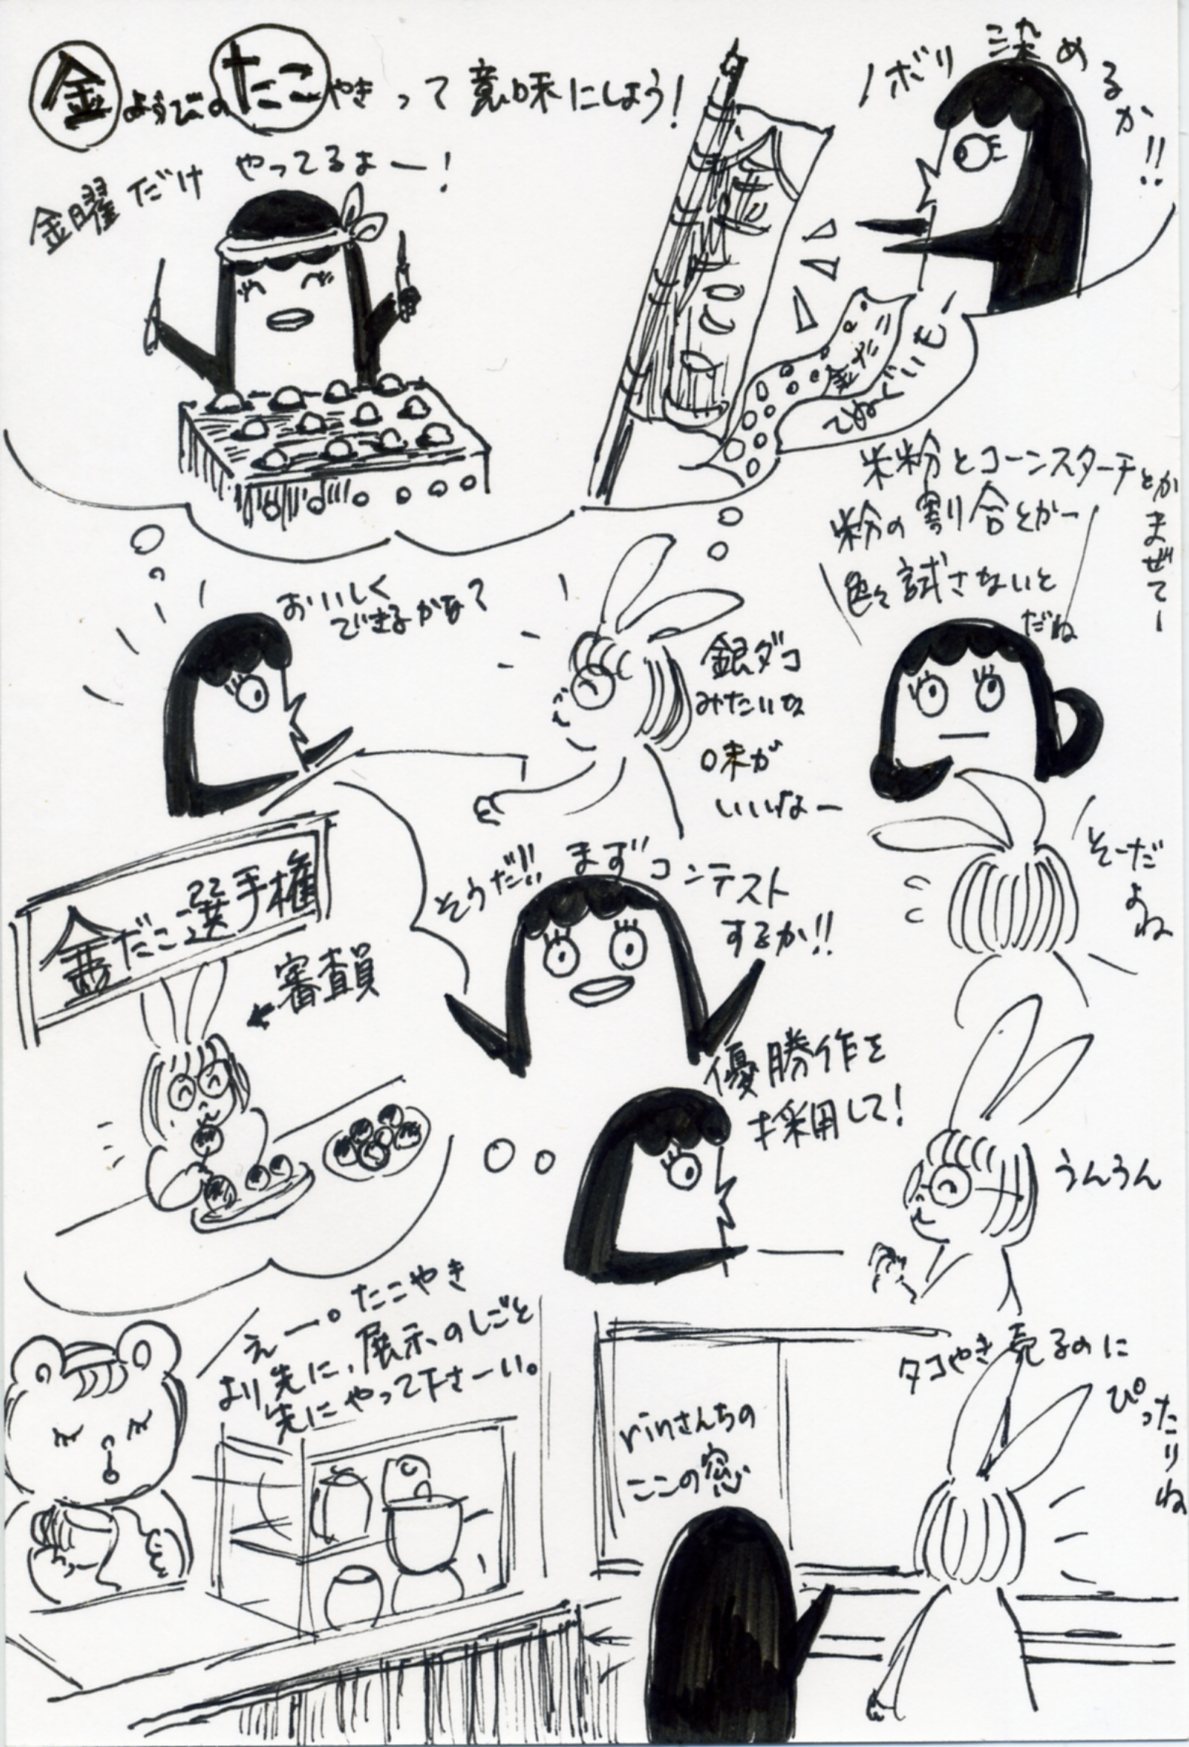 金ようびのたこやきって意味にしよう!
金曜だけ やってるよー!
ノボリ染めるか!!
金だこ
てぬぐいも
おいしく
できるかな?
銀ダコ
みたいな
味が
いいなー
米粉とコーンスターチとかまぜてー
粉の割合とかー
色々試さないと
だね
そーだよね
そうだ!!まずコンテスト
するか!!
金だこ選手権
←審査員
優勝作を
採用して!
うんうん
えー。たこやき
より先に、展示のしごと
先にやって下さーい。
rinさんちの
ここの窓
タコやき売るのに
ぴったりね